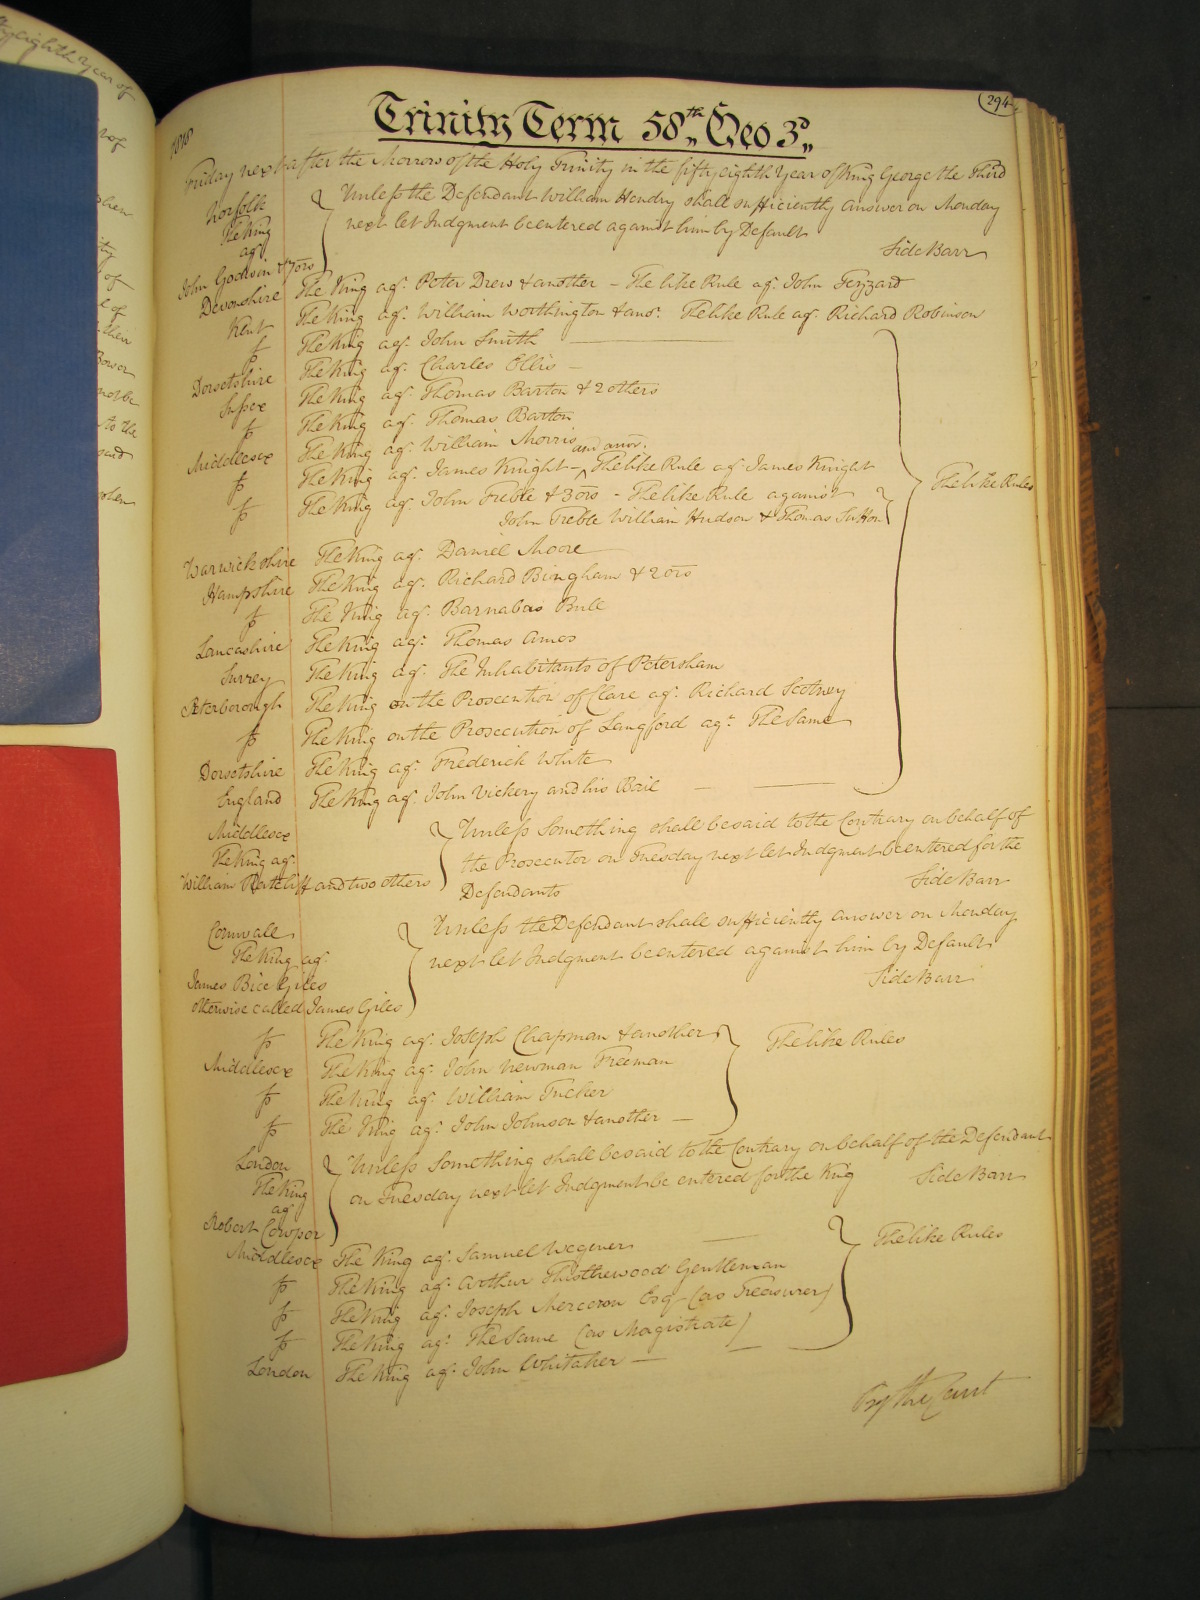 294
Trinity Term 58th Geo 3d
1818
Friday next after the Morrow of the Holy Trinity in the fifty eighth Year of King George the Third
Norfolk
The King
agt
John Godwin & 7 ors
Unless the Defendant William Hendry shall sufficiently answer on Monday
next let Judgment be entered against him by Default
Side Barr
Devonshire The King agt. Peter Drew & another – The like Rule agt. John Fezzard
Kent The King agt. William Worthington & anor. The like Rule agt. Richard Robinson
fs The King agt. John Smith
Dorsetshire The King agt. Charles Ollis –
Sussex The King agt. Thomas Barton & 2 others
fs The King agt. Thomas Barton
Middlesex The King agt. William Morris
fs The King agt. James Knight – and anor. The like Rule agt. James Knight
fs The King agt. John Treble & 3 ors – The like Rule against
John Treble William Hudson & Thomas Sutton
The like Rules
Warwickshire The King agt. Daniel Moore
Hampshire The King agt. Richard Bingham & 2 ors
fs The King agt. Barnabas Bule
Lancashire The King agt. Thomas Amos
Surrey The King agt. The Inhabitants of Petersham
Peterborough The King on the Prosecution of Clare agt. Richard Scotney
fs The King on the Prosecution of Langford agt. The Same
Dorsetshire The King agt. Frederick White
England The King agt. John Vickery and his Bail –
Middlesex
The King agt.
William Ratcliff and two others
Unless Something shall be said to the Contrary on behalf of
the Prosecutor on Tuesday next let Judgment be entered for the
Defendants Side Barr
Cornwall
The King agt.
James Bice Giles
otherwise called James Giles
Unless the Defendant shall sufficiently answer on Monday
next let Judgment be entered against him by Default
Side Barr
fs The King agt. Joseph Chapman & another
The like Rules
Middlesex The King agt. John Newman Freeman
fs The King agt. William Tucker
fs The King agt. John Johnson & another –
London
The King
agt
Robert Cowper
Unless Something shall be said to the Contrary on behalf of the Defendant
on Tuesday next let Judgment be entered for the King Side Barr
Middlesex The King agt. Samuel Wegener
The like Rules
fs The King agt. Arthur Thistlewood Gentleman
fs The King agt. Joseph Merceron Esq (as Treasurer)
fs The King agt. The Same (as Magistrate)
London The King agt. John Whitaker –
By the Court